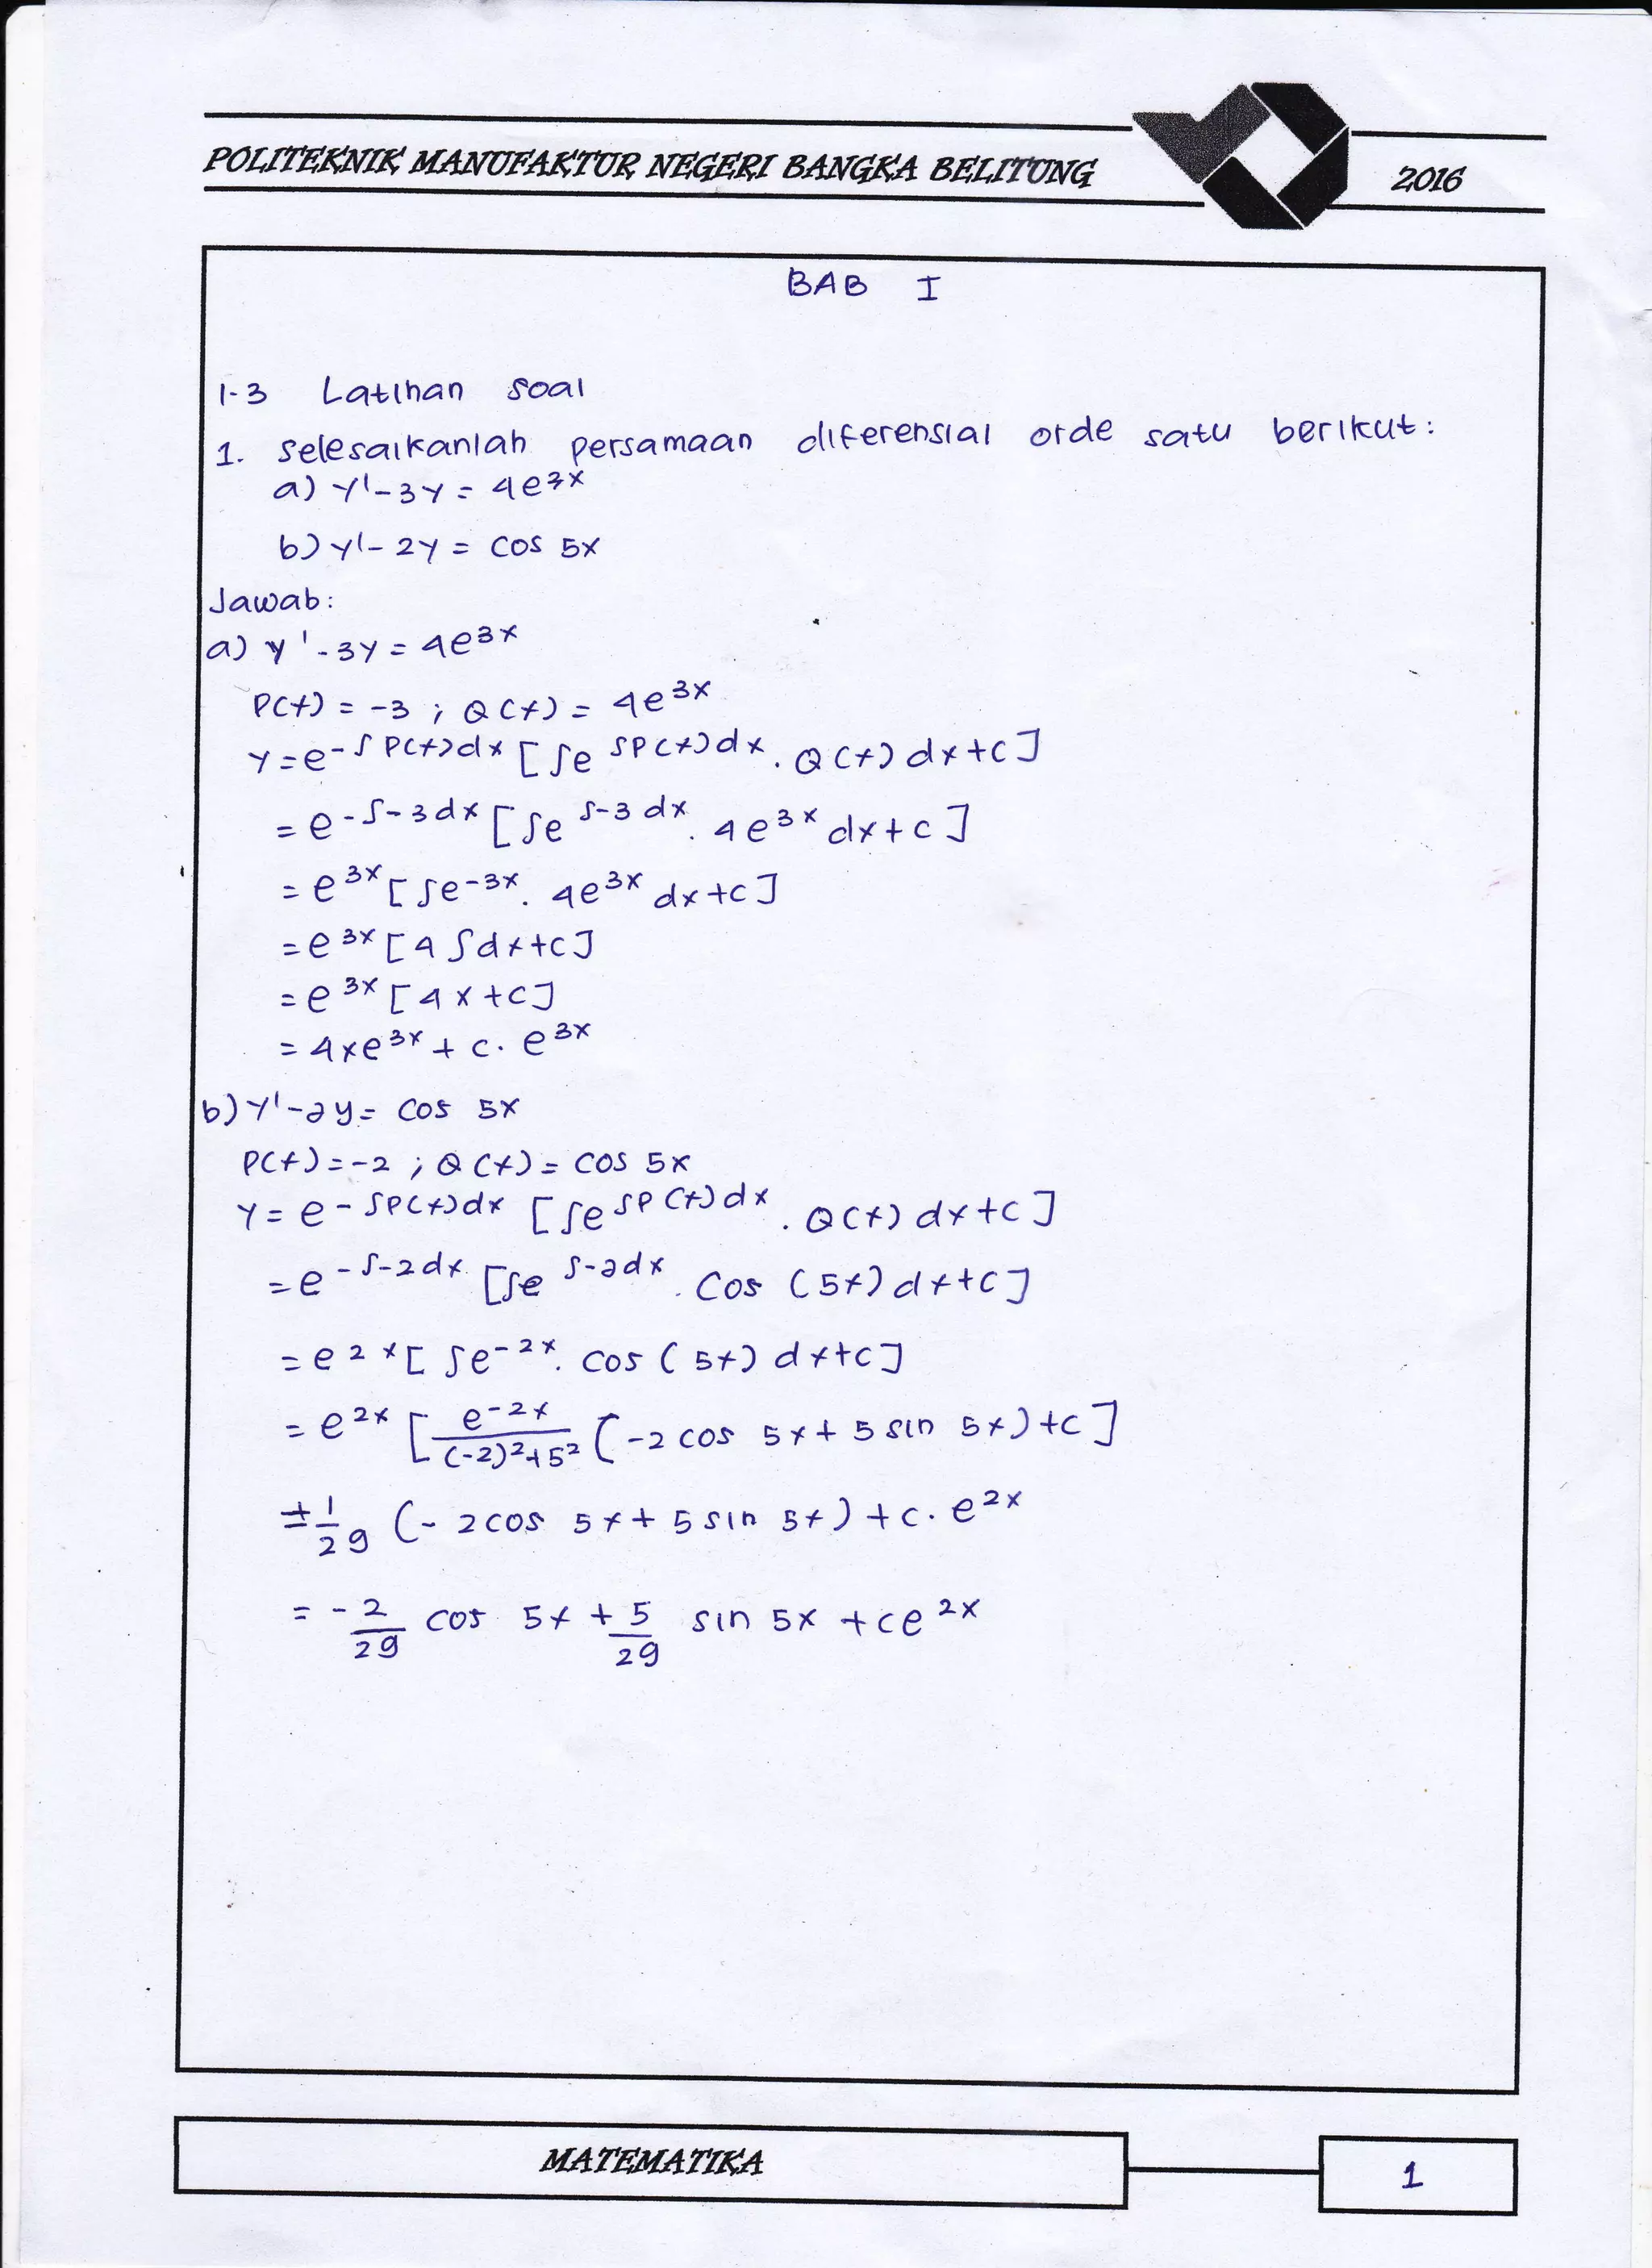 POLITEKNIK MANUFAKTUR NEGERI BANGKA BELITUNG 2016
BAB I
1-3 Latihan soal
1. selesaikanlah persamaan diferensial orde satu berikut:
a) y'-3y = 4e^3x
b) y'- 2y = cos 5x
Jawab:
a) y'-3y = 4e^3x
P(x) = -3 ; Q(x) = 4e^3x
y = e^-∫P(x)dx [∫e^∫P(x)dx . Q(x) dx+c]
= e^-∫-3dx [∫e^∫-3 dx . 4e^3x dx+c]
= e^3x [∫e^-3x . 4e^3x dx+c]
= e^3x [4 ∫dx+c]
= e^3x [4x+c]
= 4xe^3x + c. e^3x
b) y'-2y = cos 5x
P(x) = -2 ; Q(x) = cos 5x
y = e^-∫P(x)dx [∫e^∫P(x)dx . Q(x) dx+c]
= e^-∫-2dx [∫e^∫-2dx . cos (5x) dx+c]
= e^2x [∫e^-2x . cos (5x) dx+c]
= e^2x [e^-2x/((-2)^2+5^2) (-2 cos 5x + 5 sin 5x) +c]
= 1/29 (-2 cos 5x + 5 sin 5x) + c. e^2x
= -2/29 cos 5x + 5/29 sin 5x + ce^2x
MATEMATIKA 1